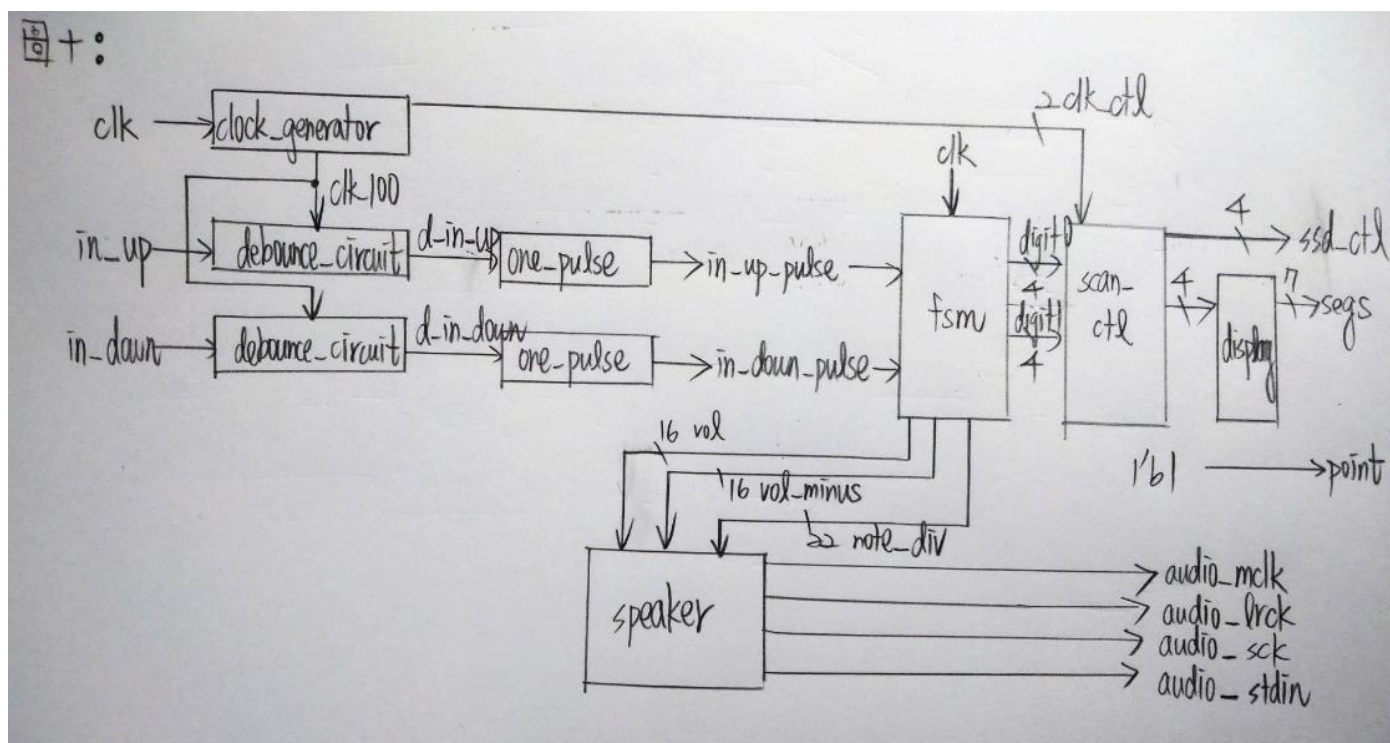 圖十:
clk
clock_generator
2 clk_ctl
clk
clk_100
in_up
debounce_circuit
d_in_up
one_pulse
in_up_pulse
fsm
digit0
4
scan_ctl
4
ssd_ctl
4
7
segs
display
in_down
debounce_circuit
d_in_down
one_pulse
in_down_pulse
digit1
4
16 vol
16 vol_minus
22 note_div
1'b1
point
speaker
audio_mclk
audio_lrck
audio_sck
audio_stdin